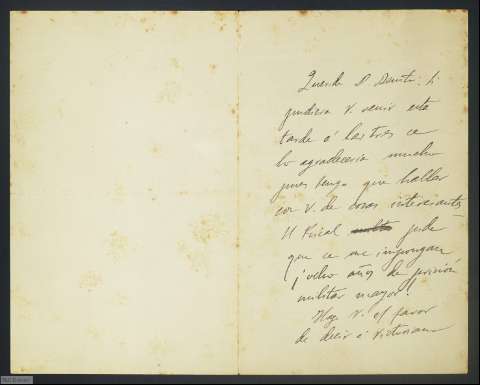 Querido D Benito: Si
pudiera V. venir esta
tarde á las tres se
lo agradecería mucho
pues tengo que hablar
con V. de cosas interesantes
El Fiscal pide
que se me impongan
¡ocho años de prisión
militar mayor!
Haga V. el favor
de decir á Victoriano